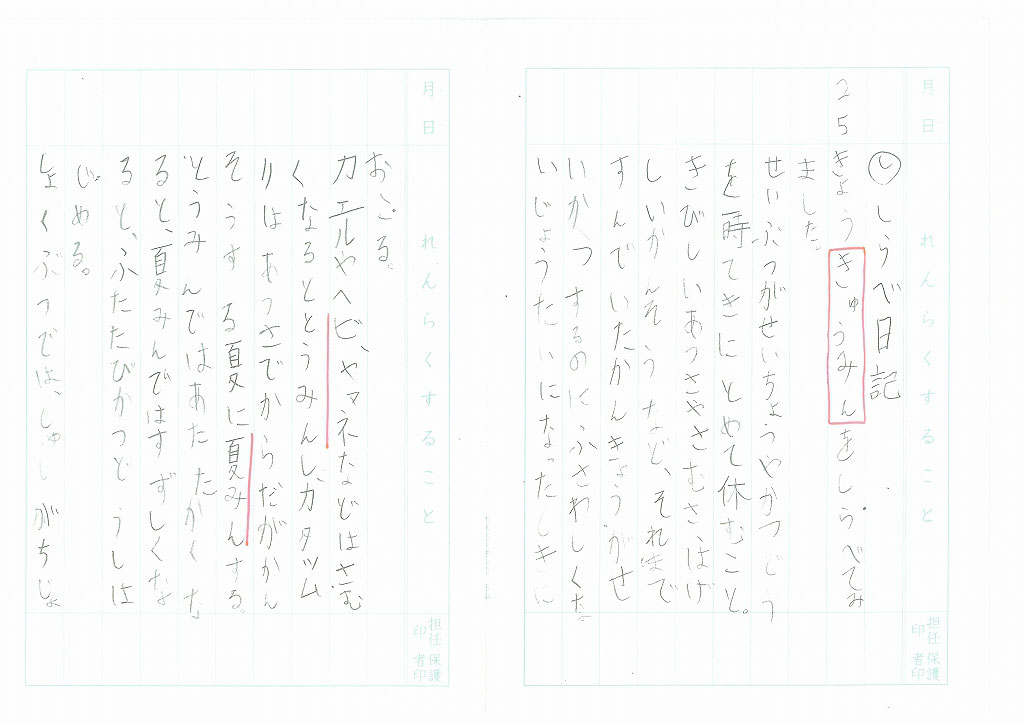 月
日
れんらくすること
担任印
保護者印
㋛しらべ日記
25きょうきゅうみんをしらべてみ
ました。
せいぶつがせいちょうやかつどう
を一時てきにとめて休むこと。
きびしいあつさやさむさ、はげ
しいかんそうなど、それまで
すんでいたかんきょうがせ
いかつするのにふさわしくな
いじょうたいになったときに
月
日
れんらくすること
担任印
保護者印
おこる。
カエルやヘビ、ヤマネなどはさむ
くなるととうみんし、カタツム
リはあつさでからだがかん
そうする夏に夏みんする。
とうみんではあたたかくな
ると、夏みんではすずしくな
ると、ふたたびかつどうしは
じめる。
しょくぶつでは、しゅしがちじょ